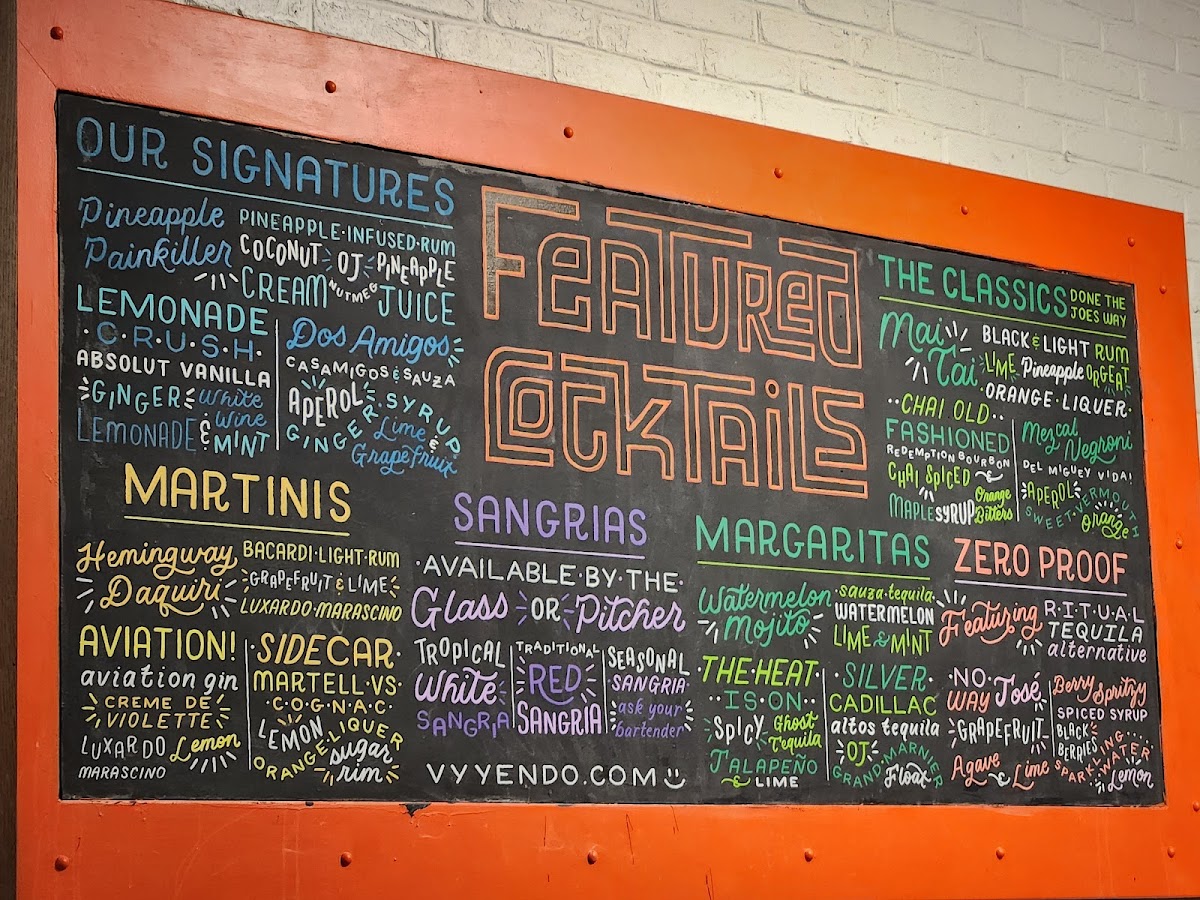 OUR SIGNATURES
Pineapple
Painkiller
PINEAPPLE·INFUSED·RUM
COCONUT OJ PINEAPPLE
CREAM NUTMEG JUICE
LEMONADE
·C·R·U·S·H·
ABSOLUT VANILLA
GINGER White
Wine
LEMONADE & MINT
Dos Amigos
CASAMIGOS & SAUZA
APEROL
GINGER·SYRUP
Lime &
Grapefruit
FEATURED
COCKTAILS
THE CLASSICS DONE THE
JOES WAY
Mai
Tai
BLACK & LIGHT RUM
LIME Pineapple ORGEAT
·ORANGE·LIQUER·
··CHAI OLD··
FASHIONED
REDEMPTION BOURBON
CHAI SPICED
MAPLE SYRUP Orange
Bitters
Mezcal
Negroni
DEL MIGUEY VIDA!
APEROL
SWEET·VERMOUTH
Orange
MARTINIS
Hemingway
Daquiri
BACARDI·LIGHT·RUM
GRAPEFRUIT & LIME
LUXARDO·MARASCINO
AVIATION!
aviation gin
CREME DE
VIOLETTE
LUXARDO Lemon
MARASCINO
·SIDECAR·
MARTELL·VS·
·C·O·G·N·A·C·
LEMON
ORANGE·LIQUER
sugar
rim
SANGRIAS
·AVAILABLE·BY·THE·
Glass OR Pitcher
TROPICAL
White
SANGRIA
TRADITIONAL
RED
SANGRIA
SEASONAL
SANGRIA
ask your
bartender
VYYENDO.COM
MARGARITAS
Watermelon
Mojito
sauza·tequila
WATERMELON
LIME & MINT
·THE·HEAT·
·IS·ON·
SPICY Ghost
Tequila
JALAPEÑO
LIME
·SILVER·
CADILLAC
altos tequila
OJ
GRAND·MARNIER
Float
ZERO PROOF
Featuring
R·I·T·U·A·L
TEQUILA
alternative
·NO·
WAY José
GRAPEFRUIT
Agave Lime
Berry Spritzy
SPICED SYRUP
BLACK
BERRIES
SPARKLING·WATER
Lemon